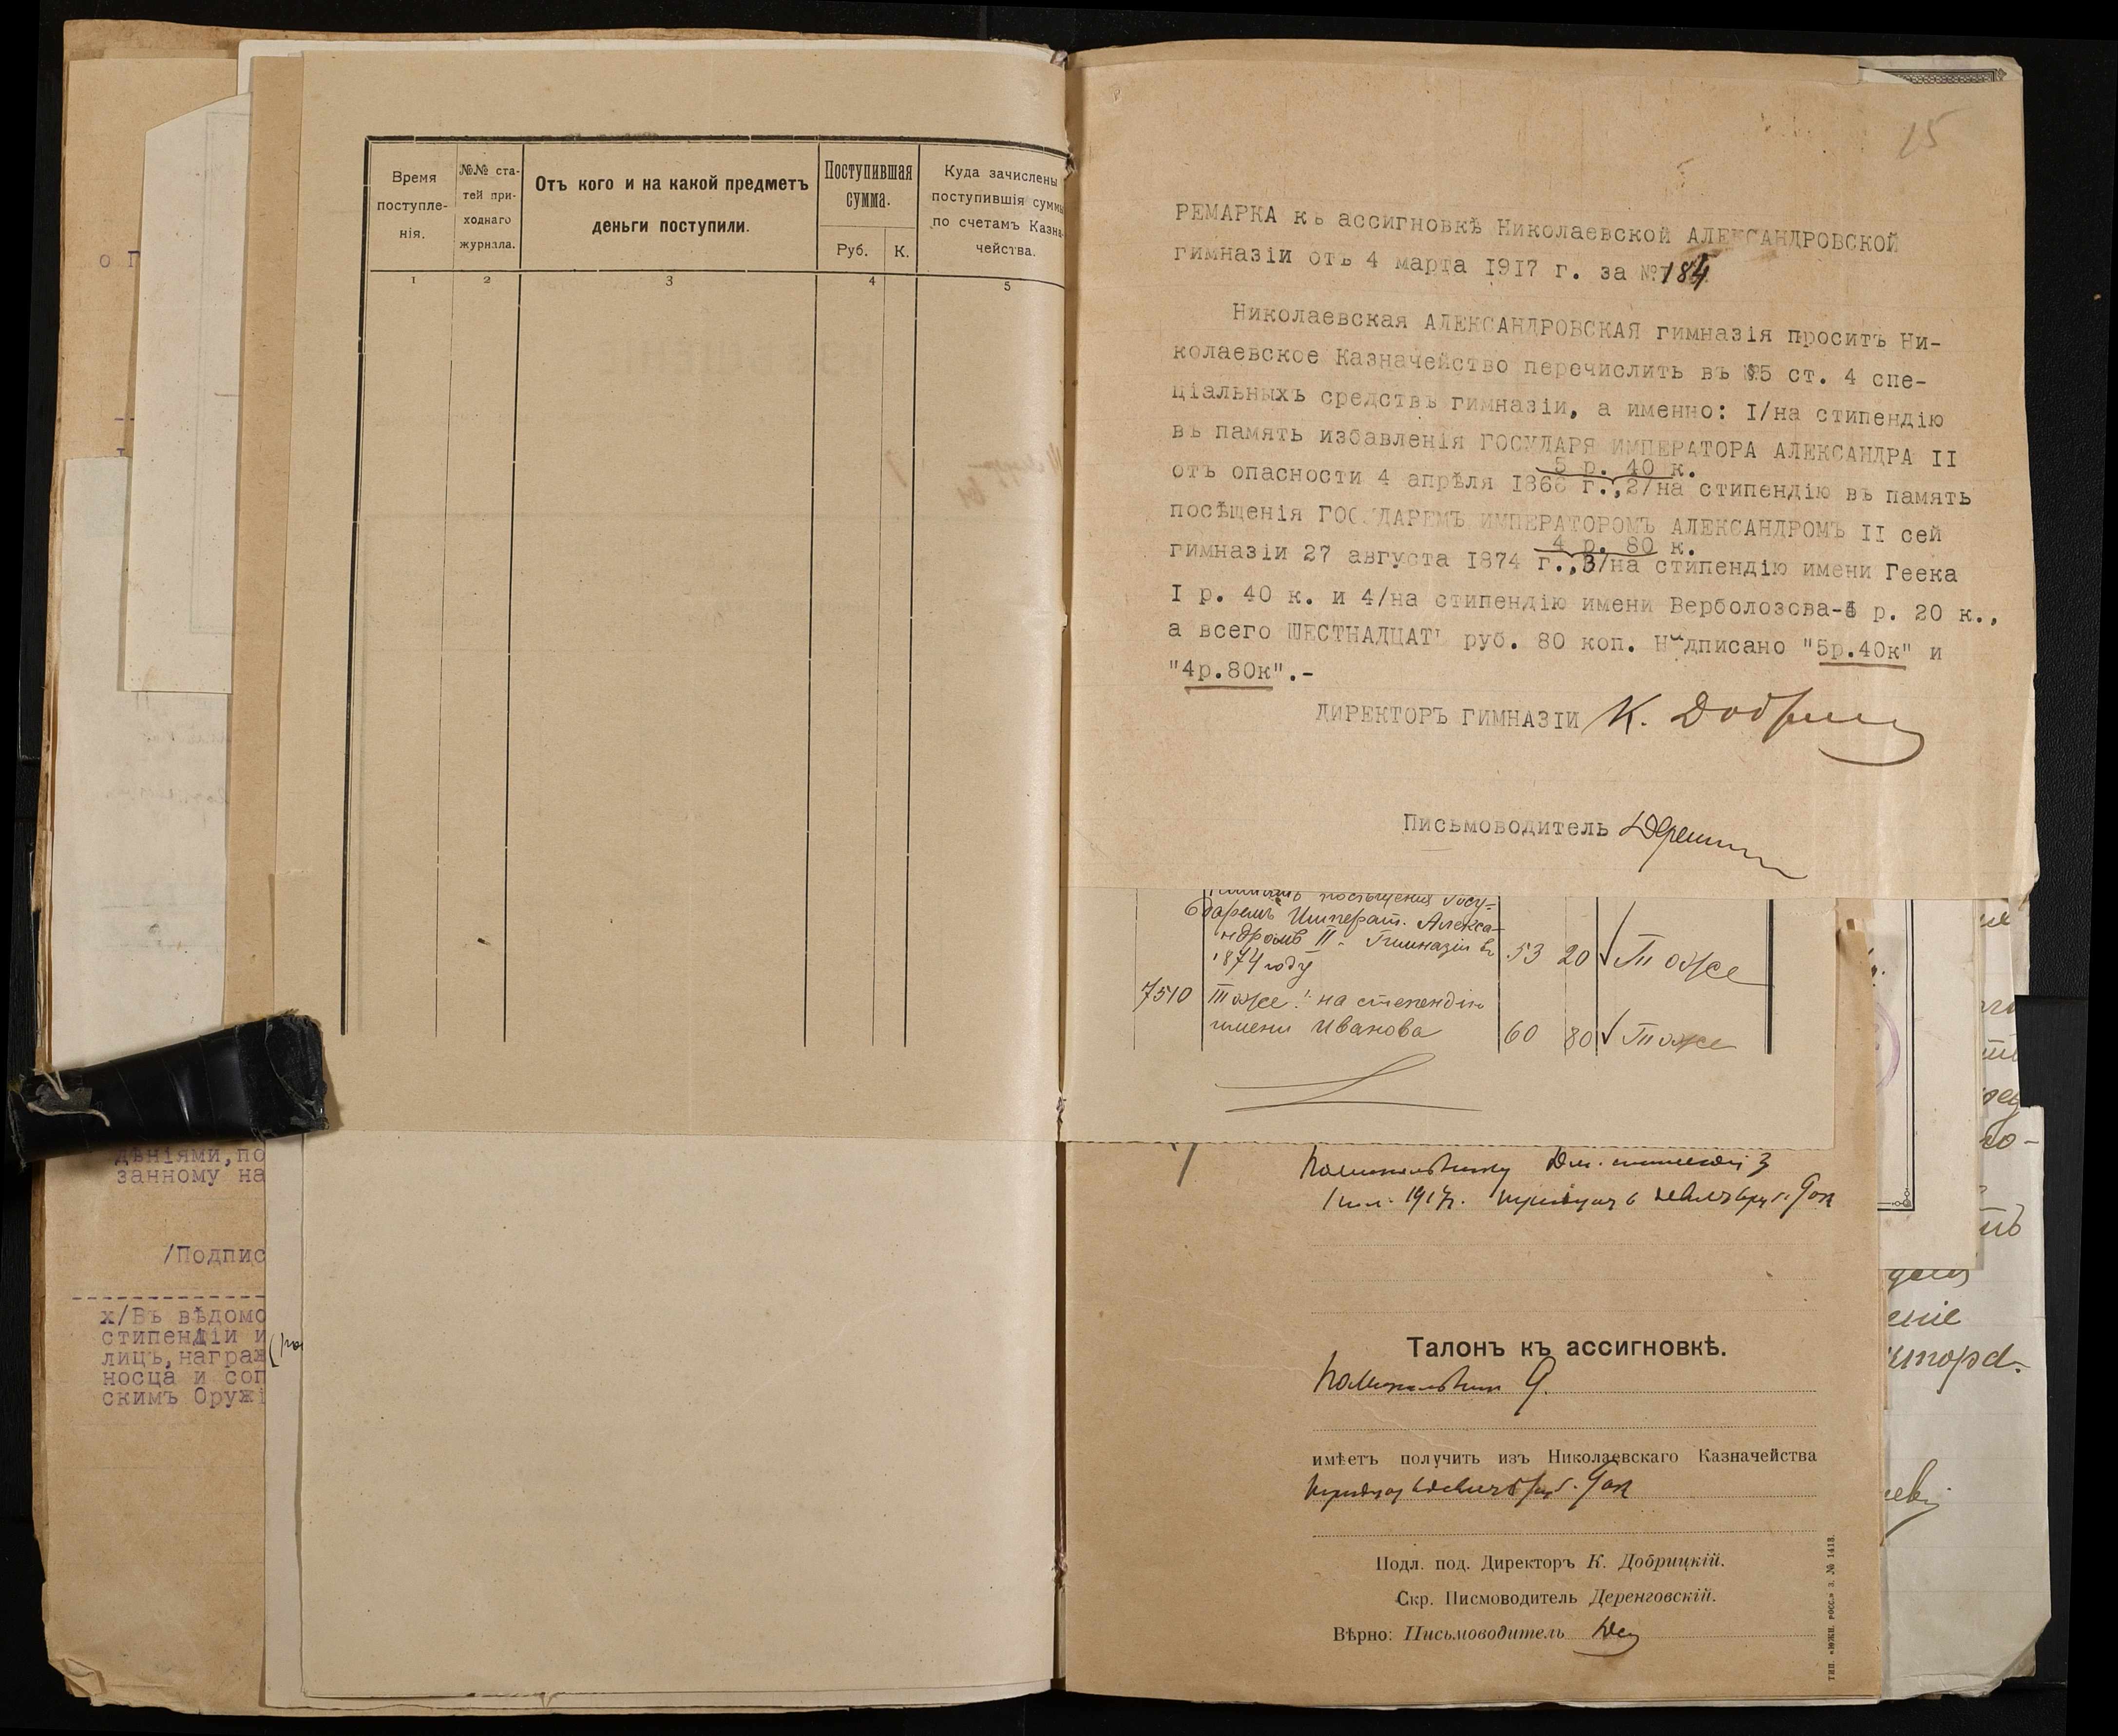 о Г
дѣніями, по
занному на
/Подпис
х/Въ вѣдомо
стипендіи и
лицъ, награж
носца и соп
скимъ Оружі
Время поступле-нія.
№№ ста-тей при-ходнаго журнала.
Отъ кого и на какой предметъ
деньги поступили.
Поступившая сумма.
Руб.
К.
Куда зачислены
поступившія суммы
по счетамъ Казна-
чейства.
1 2 3 4 5
15
РЕМАРКА къ ассигновкѣ Николаевской АЛЕКСАНДРОВСКОЙ
гимназіи отъ 4 марта 1917 г. за № 184
Николаевская АЛЕКСАНДРОВСКАЯ гимназія проситъ Ни-
колаевское Казначейство перечислить въ §5 ст. 4 спе-
ціальныхъ средствъ гимназіи, а именно: I/на стипендію
въ память избавленія ГОСУДАРЯ ИМПЕРАТОРА АЛЕКСАНДРА II
5 р. 40 к.
отъ опасности 4 апрѣля 1866 г.,2/на стипендію въ память
посѣщенія ГОСУДАРЕМЪ ИМПЕРАТОРОМЪ АЛЕКСАНДРОМЪ II сей
4 р. 80 к.
гимназіи 27 августа 1874 г.,3/на стипендію имени Геека
I р. 40 к. и 4/на стипендію имени Верболозова- р. 20 к.,
а всего ШЕСТНАДЦАТЬ руб. 80 коп. Надписано "5р.40к" и
"4р.80к".-
ДИРЕКТОРЪ ГИМНАЗІИ К.
Письмоводитель
посѣщенія Госу-
даремъ Императ. Алекса-
ндромъ II - Гимназіи въ
1874 году 53 20 Тоже
7510 Тоже: на стипендію
имени Иванова 60 80 Тоже
1917г.
Талонъ къ ассигновкѣ.
имѣетъ получить изъ Николаевскаго Казначейства
Подл. под. Директоръ К. Добрицкій.
Скр. Писмоводитель Деренговскій.
Вѣрно: Письмоводитель
тип. «южн. росс.» з. № 1413.